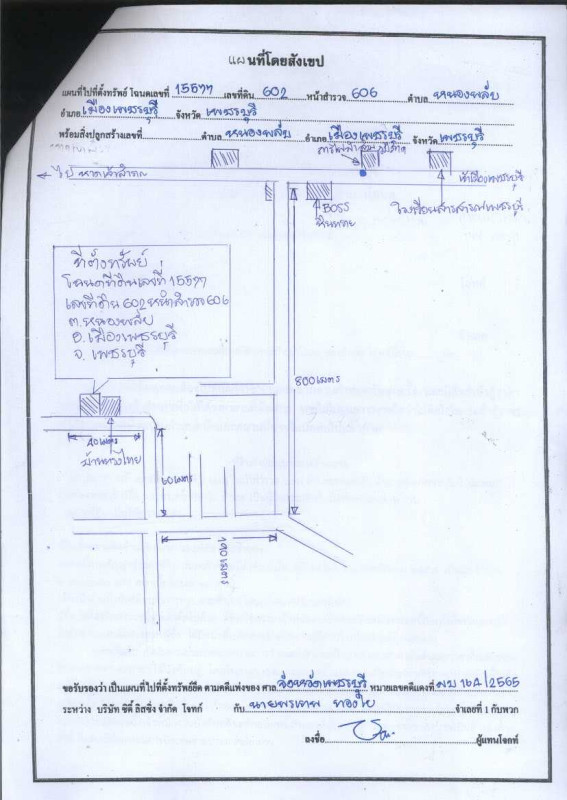 แผนที่โดยสังเขป
แผนที่ไปที่ตั้งทรัพย์ โฉนดเลขที่ 15577 เลขที่ดิน 602 หน้าสำรวจ 606 ตำบล หนองพลับ
อำเภอ เมืองเพชรบุรี จังหวัด เพชรบุรี
พร้อมสิ่งปลูกสร้างเลขที่ ตำบล หนองพลับ อำเภอ เมืองเพชรบุรี จังหวัด เพชรบุรี
ไป หาดเจ้าสำราญ
เข้าเมืองเพชรบุรี
BOSS
โรงเรียนสารสาสน์เพชรบุรี
ที่ตั้งทรัพย์
โฉนดที่ดินเลขที่ 15577
เลขที่ดิน 602 หน้าสำรวจ 606
ต.หนองพลับ
อ.เมืองเพชรบุรี
จ.เพชรบุรี
800 เมตร
40 เมตร
บ้านทรงไทย
60 เมตร
190 เมตร
ขอรับรองว่า เป็นแผนที่ไปที่ตั้งทรัพย์ยึด ตามคดีแพ่งของ ศาล จังหวัดเพชรบุรี หมายเลขคดีแดงที่ ผบ 164/2565
ระหว่าง บริษัท ซิตี้ ลิสซิ่ง จำกัด โจทก์ กับ นายพรเทพ จำเลยที่ 1 กับพวก
ลงชื่อ ผู้แทนโจทก์